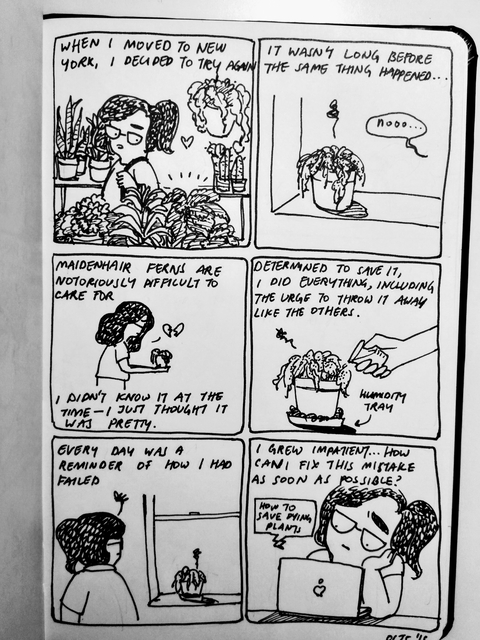 WHEN I MOVED TO NEW
YORK, I DECIDED TO TRY AGAIN
IT WASN'T LONG BEFORE
THE SAME THING HAPPENED...
nooo...
MAIDENHAIR FERNS ARE
NOTORIOUSLY DIFFICULT TO
CARE FOR
I DIDN'T KNOW IT AT THE
TIME — I JUST THOUGHT IT
WAS PRETTY.
DETERMINED TO SAVE IT,
I DID EVERYTHING, INCLUDING
THE URGE TO THROW IT AWAY
LIKE THE OTHERS.
HUMIDITY
TRAY
EVERY DAY WAS A
REMINDER OF HOW I HAD
FAILED
I GREW IMPATIENT... HOW
CAN I FIX THIS MISTAKE
AS SOON AS POSSIBLE?
HOW TO
SAVE DYING
PLANTS